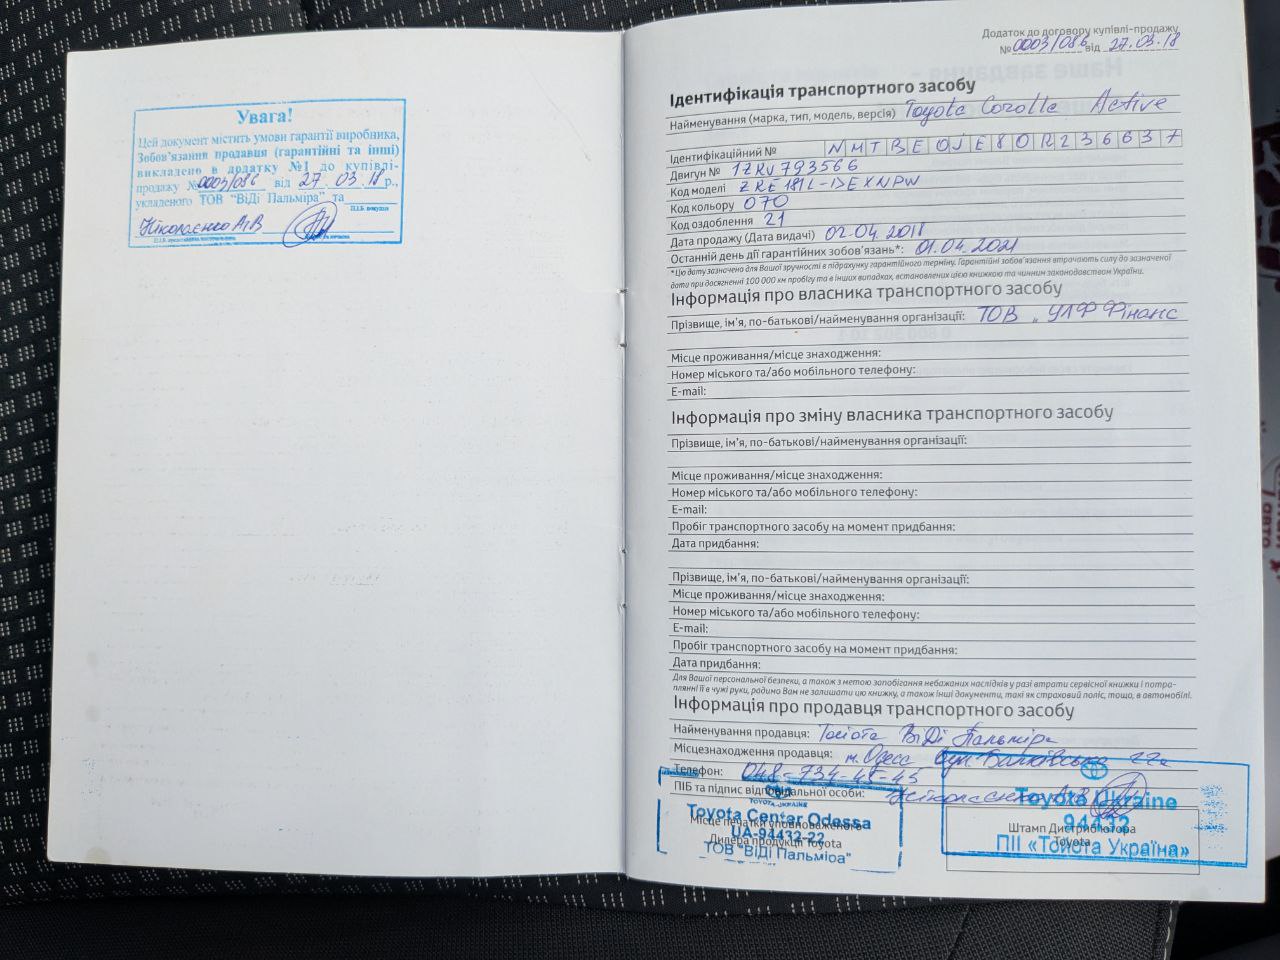 Увага!
Цей документ містить умови гарантії виробника,
Зобов'язання продавця (гарантійні та інші)
викладено в додатку №1 до купівлі-
продажу №0003/086 від 27.03.18 р.,
укладеного ТОВ "ВіДі Пальміра" та
П.І.Б. покупця
Ніколаєнко А.В
Додаток до договору купівлі-продажу
№ 0003/086 від 27.03.18
Ідентифікація транспортного засобу
Найменування (марка, тип, модель, версія) Toyota Corolla Active
Ідентифікаційний № NMTBE0JE80R236637
Двигун № 1ZRV793566
Код моделі ZRE181L-DEXNPW
Код кольору 070
Код оздоблення 21
Дата продажу (Дата видачі) 02.04.2018
Останній день дії гарантійних зобов'язань*: 01.04.2021
*Цю дату зазначено для Вашої зручності в підрахунку гарантійного терміну. Гарантійні зобов'язання втрачають силу до зазначеної
дати при досягненні 100 000 км пробігу та в інших випадках, встановлених цією книжкою та чинним законодавством України.
Інформація про власника транспортного засобу
Прізвище, ім'я, по-батькові/найменування організації: ТОВ „УЛФ Фінанс
Місце проживання/місце знаходження:
Номер міського та/або мобільного телефону:
E-mail:
Інформація про зміну власника транспортного засобу
Прізвище, ім'я, по-батькові/найменування організації:
Місце проживання/місце знаходження:
Номер міського та/або мобільного телефону:
E-mail:
Пробіг транспортного засобу на момент придбання:
Дата придбання:
Прізвище, ім'я, по-батькові/найменування організації:
Місце проживання/місце знаходження:
Номер міського та/або мобільного телефону:
E-mail:
Пробіг транспортного засобу на момент придбання:
Дата придбання:
Для Вашої персональної безпеки, а також з метою запобігання небажаних наслідків у разі втрати сервісної книжки і потра-
плянні її в чужі руки, радимо Вам не залишати цю книжку, а також інші документи, такі як страховий поліс, тощо, в автомобілі.
Інформація про продавця транспортного засобу
Найменування продавця: Тойота ВіДі Пальміра
Місцезнаходження продавця: м. Одеса вул. Балківська 22а
Телефон: 048-734-45-45
ПІБ та підпис відповідальної особи: Ніколаєнко А.В
TOYOTA-UKRAINE
Toyota Center Odessa
UA-94432-22
ТОВ "ВіДі Пальміра"
Місце печатки уповноваженого
Дилера продукції Toyota
Toyota Ukraine
94432
ПІІ «Тойота Україна»
Штамп Дистриб'ютора
Toyota